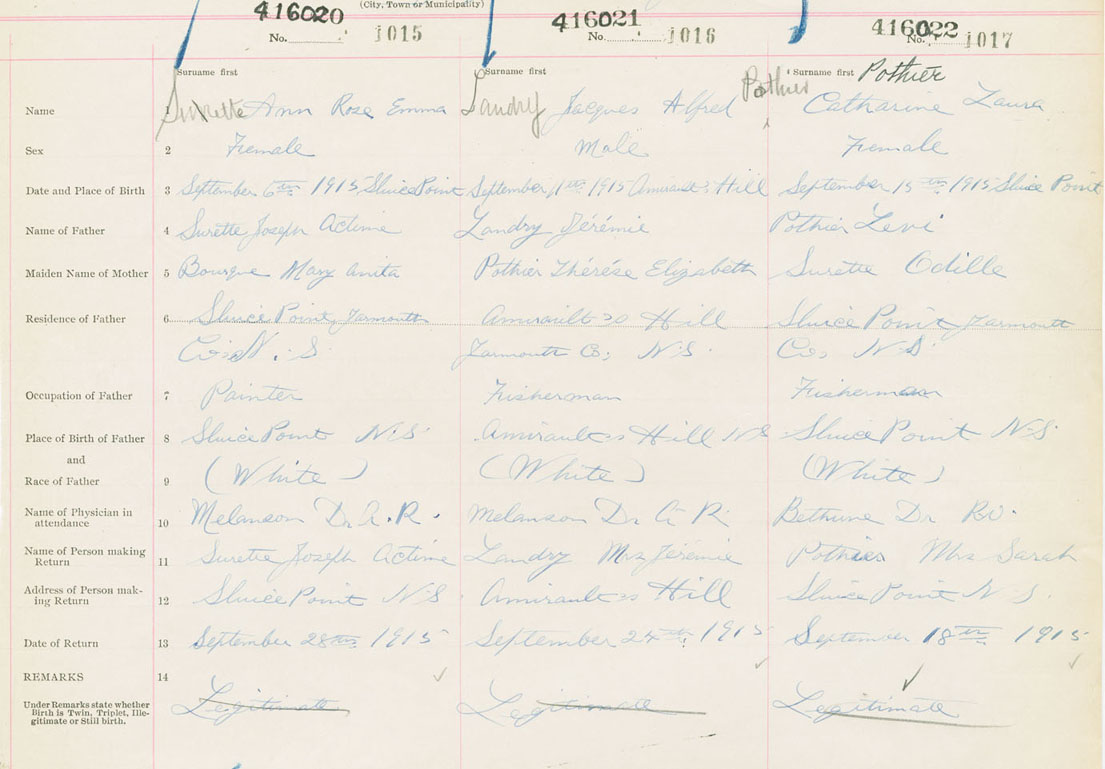 (City, Town or Municipality)
416020 416021 416022
No. 1015 No. 1016 No. 1017
Surname first Surname first Surname first Pothier
Name 1 Surette Ann Rose Emma Landry Jacques Alfred Pothier Catharine Laura
Sex 2 Female Male Female
Date and Place of Birth 3 September 6th 1915 Sluice Point September 1st 1915 Amirault's Hill September 15th 1915 Sluice Point
Name of Father 4 Surette Joseph Actime Landry Jérémie Pothier Levi
Maiden Name of Mother 5 Bourque Mary Anita Pothier Thérése Elizabeth Surette Odille
Residence of Father 6 Sluice Point, Yarmouth Amirault's Hill Sluice Point Yarmouth
Co; N.S Yarmouth Co; N.S. Co, N.S.
Occupation of Father 7 Painter Fisherman Fisherman
Place of Birth of Father 8 Sluice Point N.S. Amirault's Hill NS Sluice Point N.S.
and
Race of Father 9 (White) (White) (White)
Name of Physician in
attendance 10 Melanson Dr A.R. Melanson Dr A R Bethune Dr
Name of Person making
Return 11 Surette Joseph Actime Landry Mrs Jérémie Pothier Mrs Sarah
Address of Person mak-
ing Return 12 Sluice Point N.S Amirault's Hill Sluice Point N.S.
Date of Return 13 September 28th 1915 September 24th 1915 September 18th 1915
REMARKS 14
Under Remarks state whether
Birth is Twin, Triplet, Ille-
gitimate or Still birth. Legitimate Legitimate Legitimate